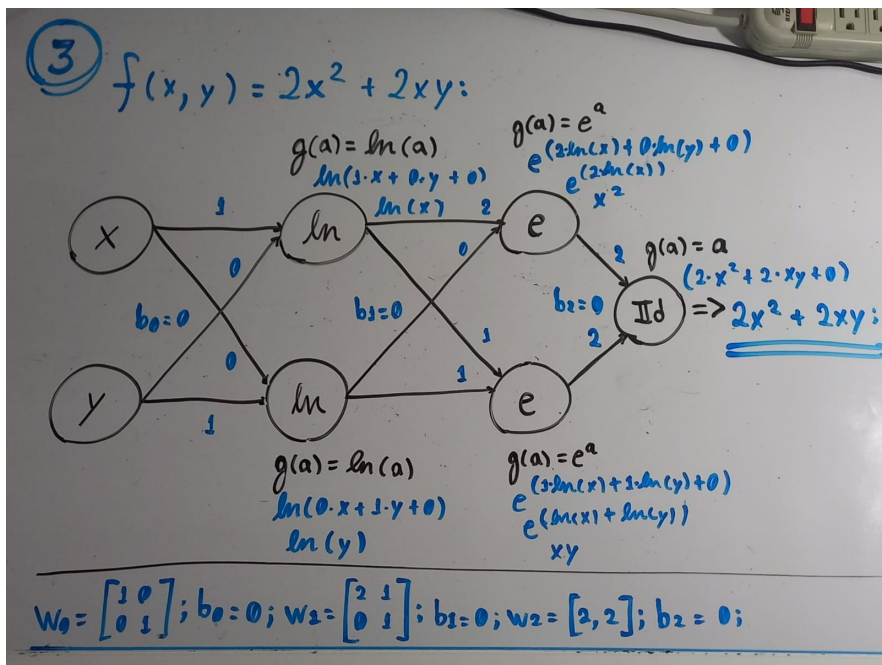 3
f(x, y) = 2x² + 2xy:
g(a) = ln(a)
ln(1·x + 0·y + 0)
ln(x)
g(a) = eᵃ
e^(2·ln(x) + 0·ln(y) + 0)
e^(2·ln(x))
x²
x 1 ln 2 e
0 0
b₀=0 b₁=0 b₂=0
2 g(a) = a
(2·x² + 2·xy + 0)
IId => 2x² + 2xy:
2
0 1
y 1 ln 1 e
g(a) = ln(a)
ln(0·x + 1·y + 0)
ln(y)
g(a) = eᵃ
e^(1·ln(x) + 1·ln(y) + 0)
e^(ln(x) + ln(y))
xy
W₀ = [1 0
0 1]; b₀=0; W₁ = [2 1
0 1]; b₁=0; W₂ = [2, 2]; b₂ = 0;